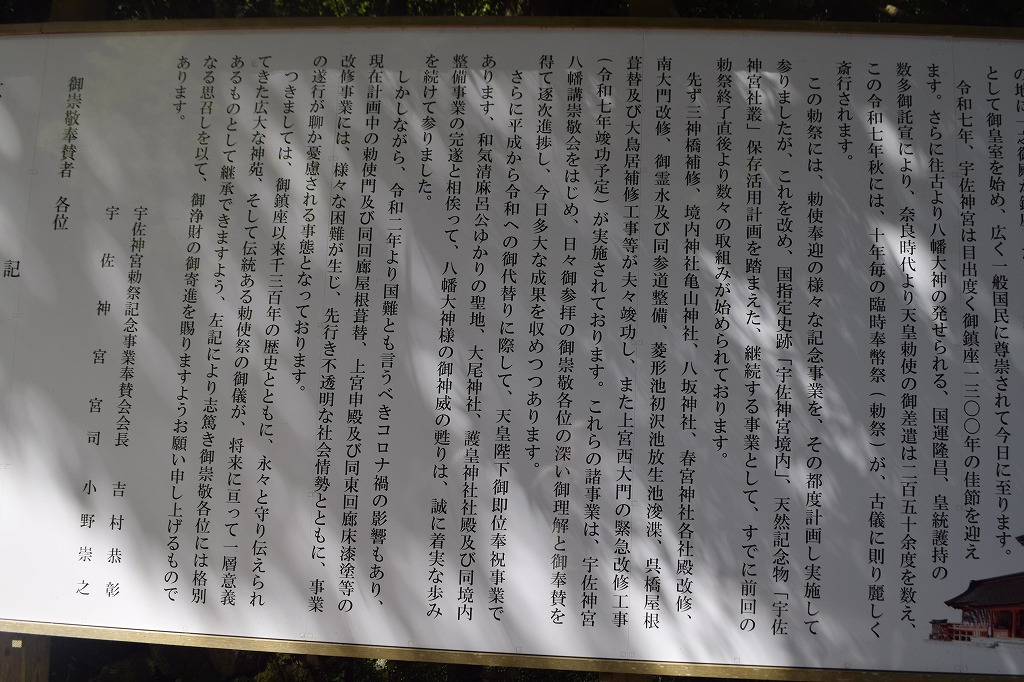 の地に一之御殿が鎮座
として御皇室を始め、広く一般国民に尊崇されて今日に至ります。
令和七年、宇佐神宮は目出度く御鎮座一三〇〇年の佳節を迎え
ます。さらに往古より八幡大神の発せられる、国運隆昌、皇統護持の
数多御託宣により、奈良時代より天皇勅使の御差遣は二百五十余度を数え、
この令和七年秋には、十年毎の臨時奉幣祭（勅祭）が、古儀に則り麗しく
斎行されます。
この勅祭には、勅使奉迎の様々な記念事業を、その都度計画し実施して
参りましたが、これを改め、国指定史跡「宇佐神宮境内」、天然記念物「宇佐
神宮社叢」保存活用計画を踏まえた、継続する事業として、すでに前回の
勅祭終了直後より数々の取組みが始められております。
先ず三神橋補修、境内神社亀山神社、八坂神社、春宮神社各社殿改修、
南大門改修、御霊水及び同参道整備、菱形池初沢池放生池浚渫、呉橋屋根
葺替及び大鳥居補修工事等が夫々竣功し、また上宮西大門の緊急改修工事
（令和七年竣功予定）が実施されております。これらの諸事業は、宇佐神宮
八幡講崇敬会をはじめ、日々御参拝の御崇敬各位の深い御理解と御奉賛を
得て逐次進捗し、今日多大な成果を収めつつあります。
さらに平成から令和への御代替りに際して、天皇陛下御即位奉祝事業で
あります、和気清麻呂公ゆかりの聖地、大尾神社、護皇神社社殿及び同境内
整備事業の完遂と相俟って、八幡大神様の御神威の甦りは、誠に着実な歩み
を続けて参りました。
しかしながら、令和二年より国難とも言うべきコロナ禍の影響もあり、
現在計画中の勅使門及び同回廊屋根葺替、上宮申殿及び同東回廊床漆塗等の
改修事業には、様々な困難が生じ、先行き不透明な社会情勢とともに、事業
の遂行が聊か憂慮される事態となっております。
つきましては、御鎮座以来千三百年の歴史とともに、永々と守り伝えられ
てきた広大な神苑、そして伝統ある勅使祭の御儀が、将来に亘って一層意義
あるものとして継承できますよう、左記により志篤き御崇敬各位には格別
なる思召しを以て、御浄財の御寄進を賜りますようお願い申し上げるもので
あります。
宇佐神宮勅祭記念事業奉賛会会長 吉村恭彰
宇佐神宮宮司 小野崇之
御崇敬奉賛者 各位
記